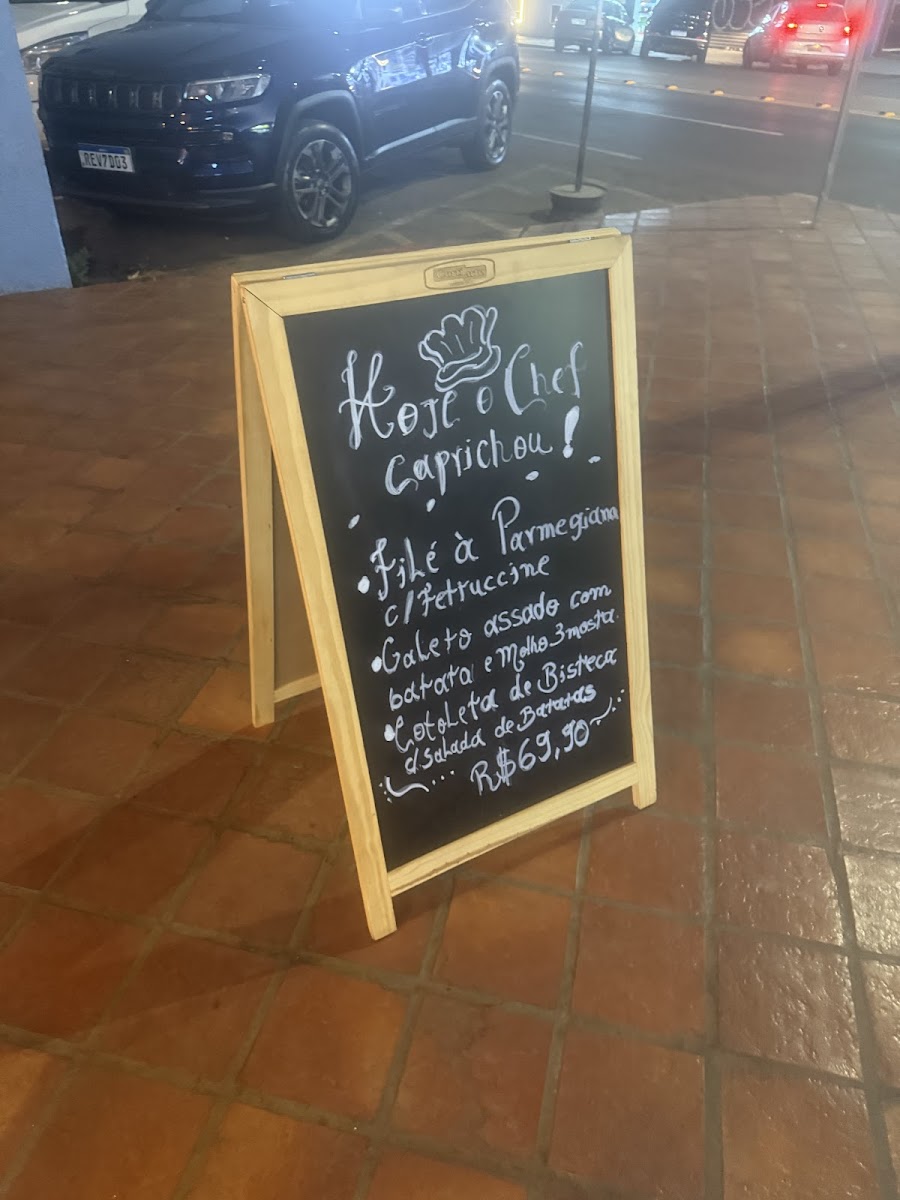 REV7D03
Hoje o Chef
Caprichou!
• Filé à Parmegiana
c/Fetruccine
• Galeto assado com
batata e Molho 3 mosta.
• Cotoleta de Bisteca
c/ Salada de Batatas
R$69,90